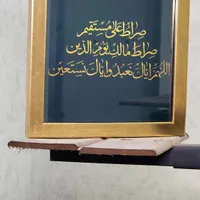 صراط على مستقيم
صراط مالك يوم الدين
اللهم اياك نعبد واياك نستعين